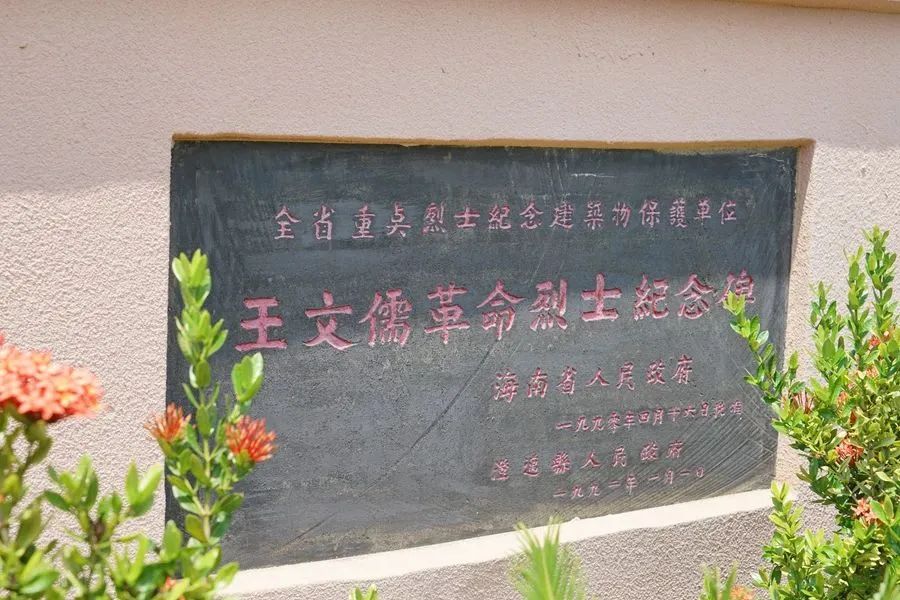 全省重点烈士纪念建築物保護单位
王文儒革命烈士纪念碑
海南省人民政府
一九九零年四月十六日批准
澄迈縣人民政府
一九九一年一月一日